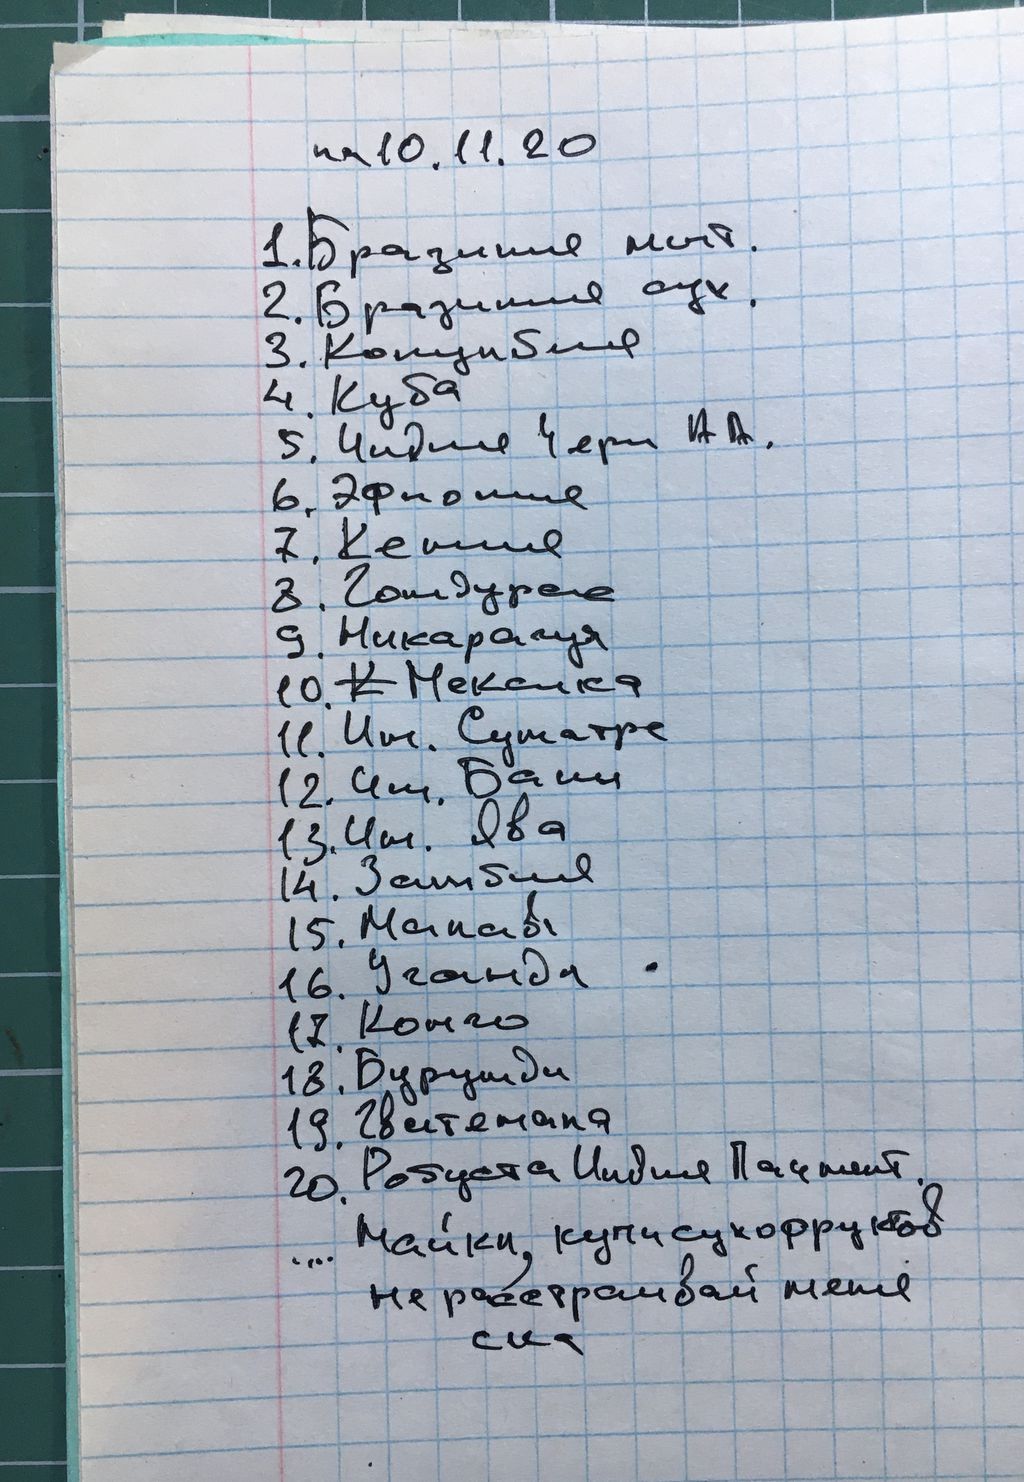 на 10.11.20
1. Бразилия мыт.
2. Бразилия сух.
3. Колумбия
4. Куба
5. Индия Черри АА.
6. Эфиопия
7. Кения
8. Гондурас
9. Никарагуа
10. Мексика
11. Ин. Суматра
12. Ин. Бали
13. Ин. Ява
14. Замбия
15. Малави
16. Уганда
17. Конго
18. Бурунди
19. Гватемала
20. Робуста Индия
.... Майки, купи сухофруктов
не расстраивай меня
сна